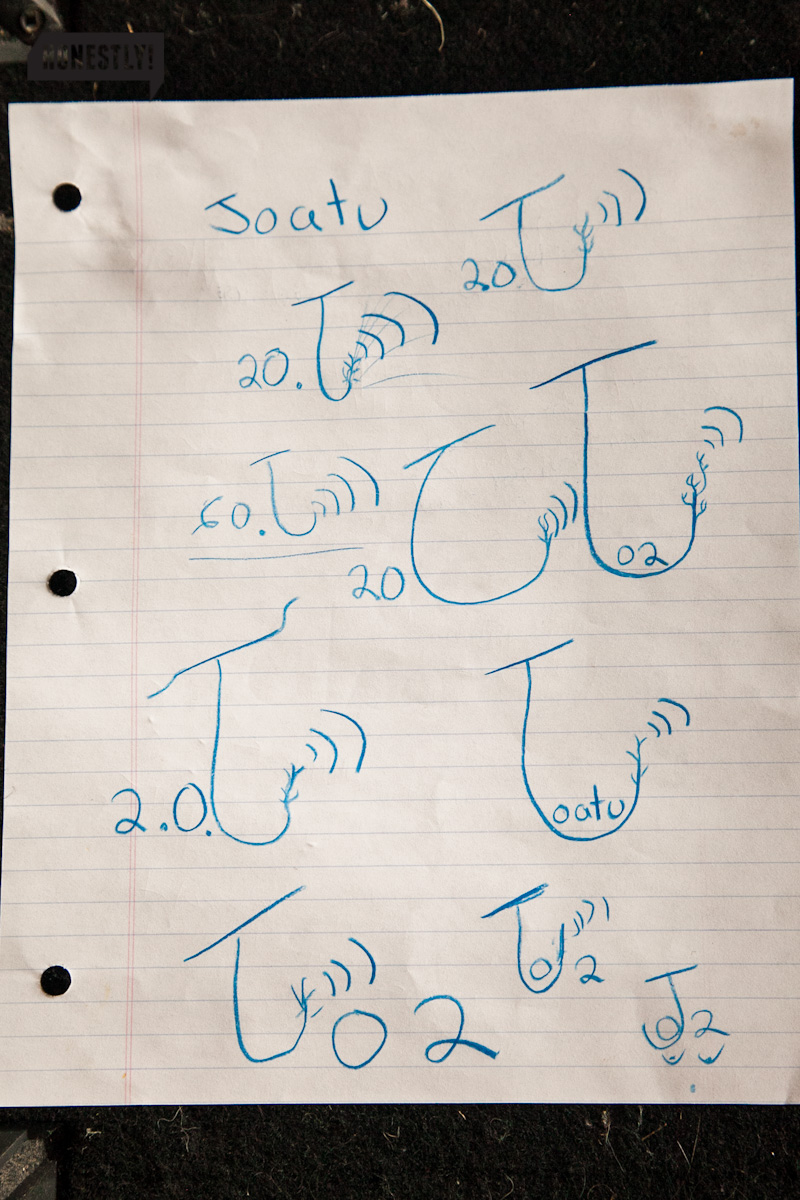 HONESTLY!
Joatu
20.
20.
60.
20
02
2.0.
oatu
02
02
02